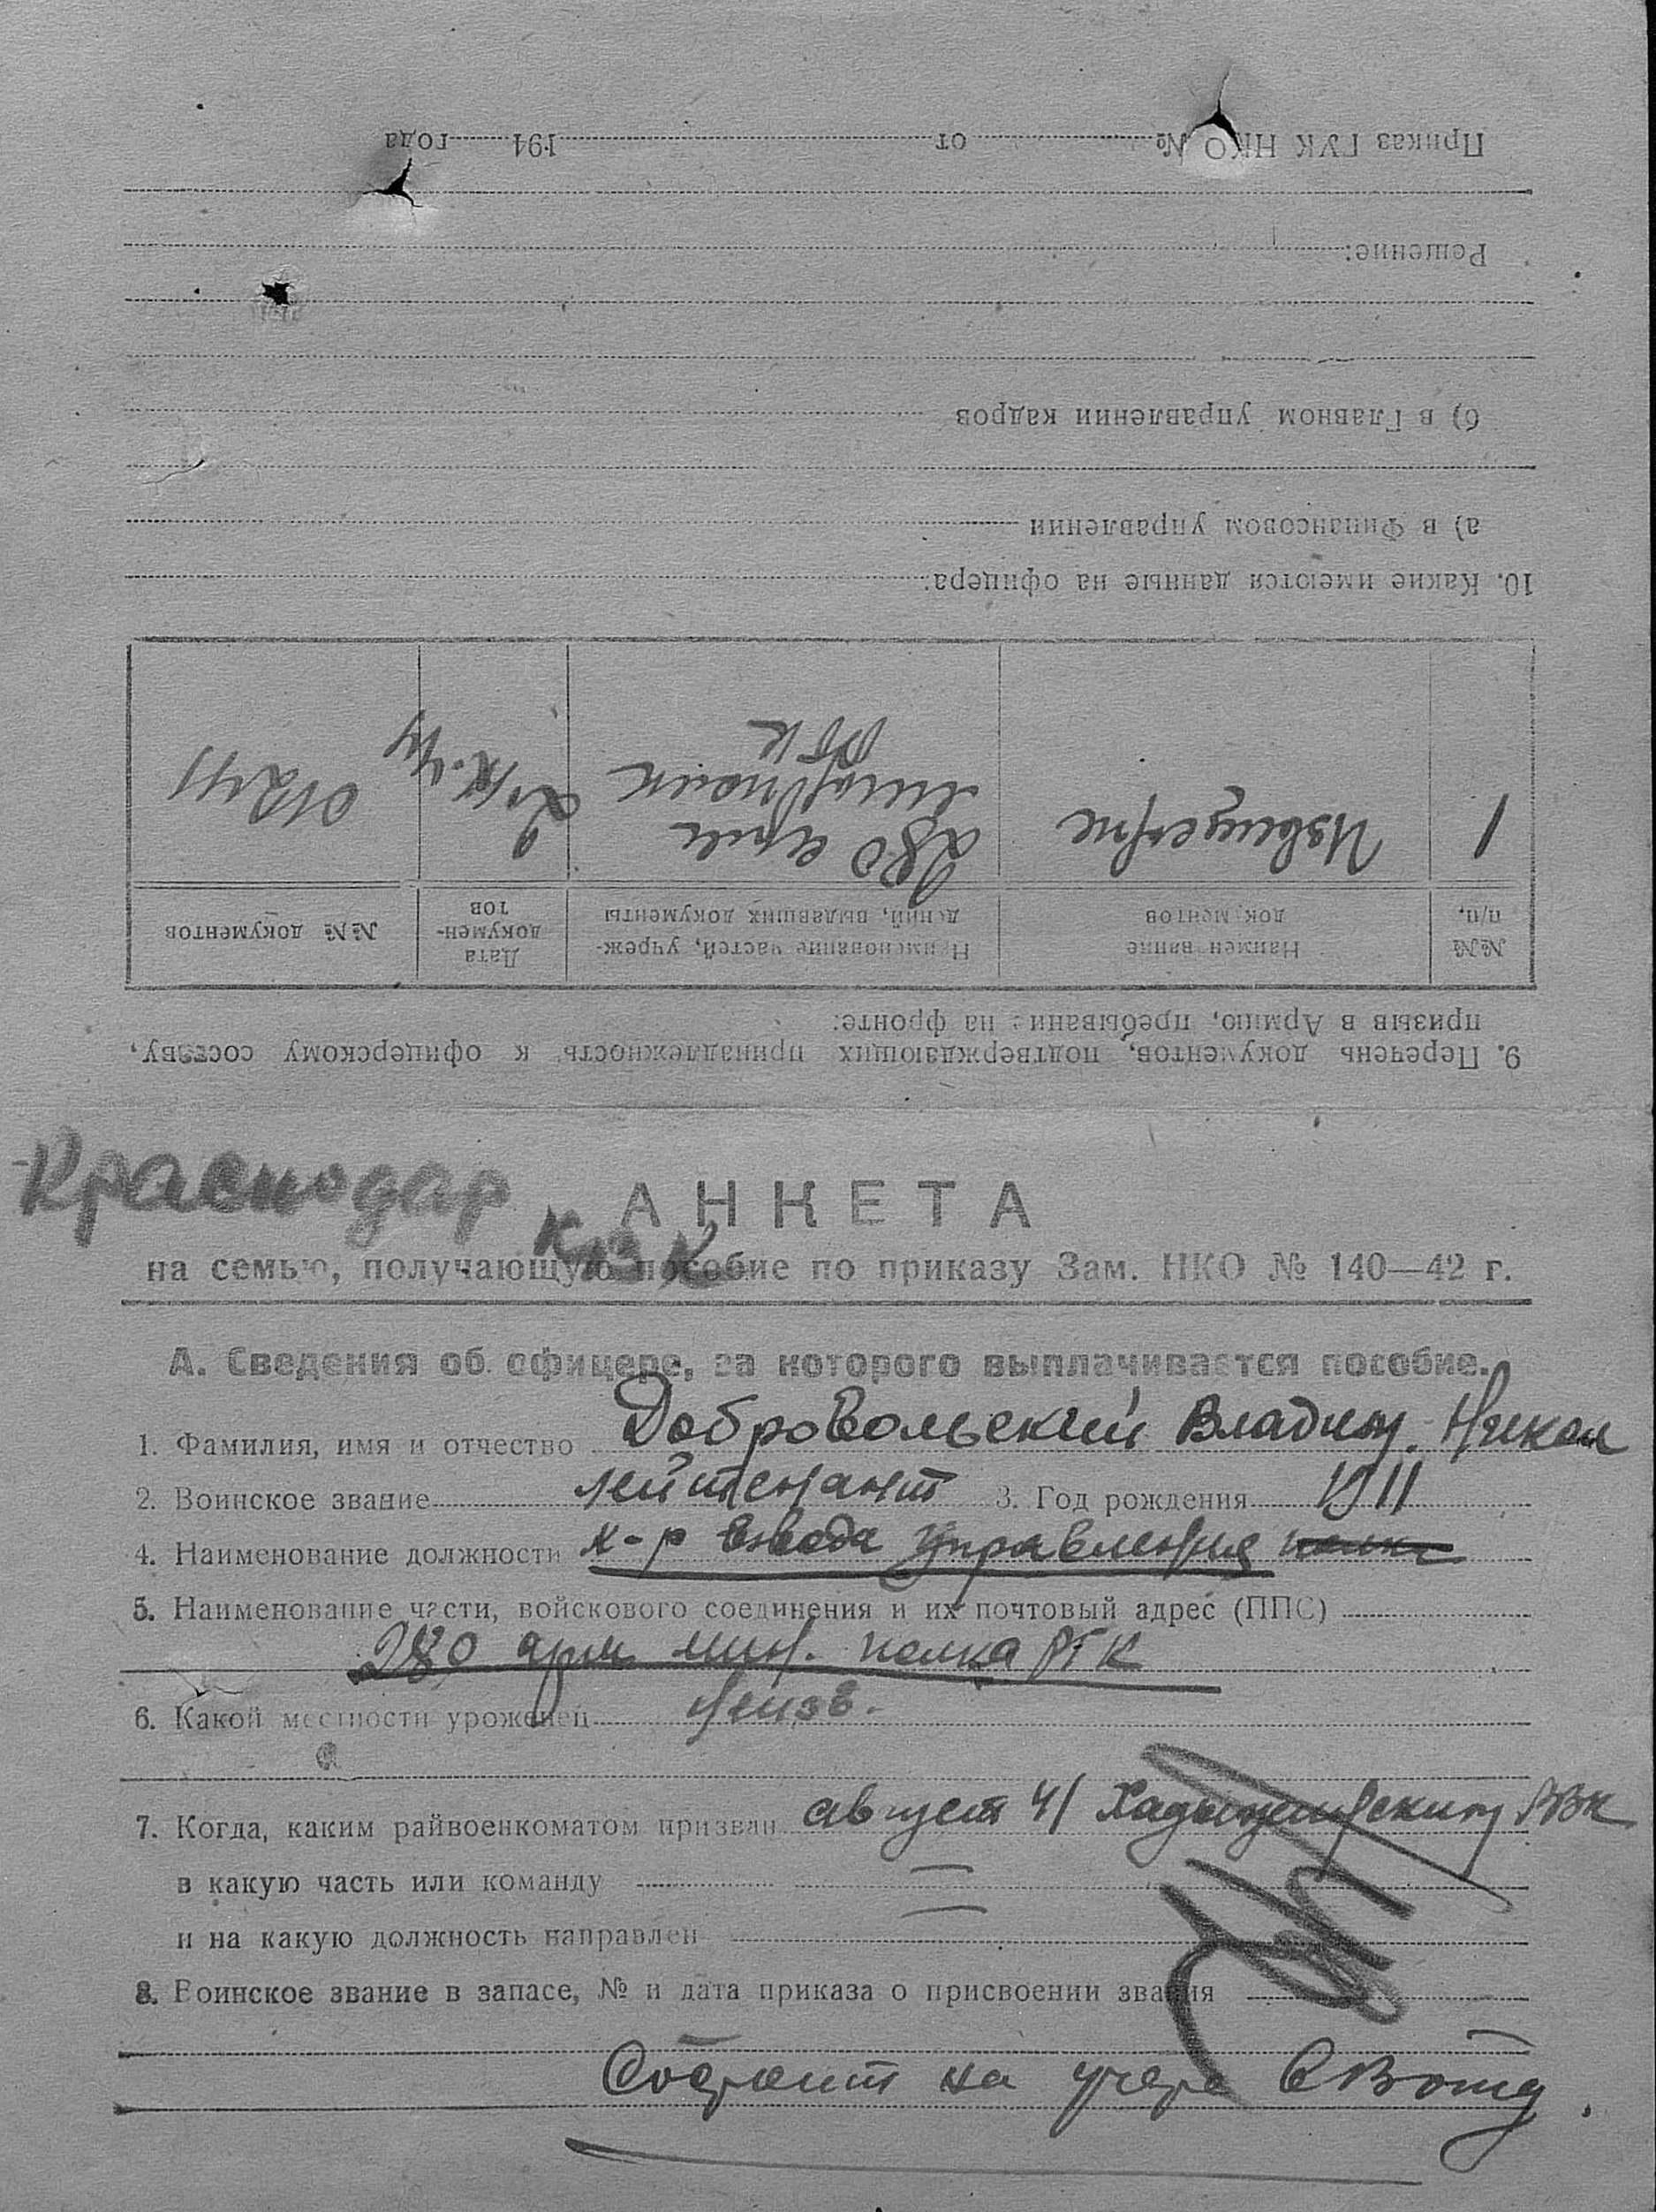 Краснодар
АНКЕТА
на семью, получающую пособие по приказу Зам. НКО № 140—42 г.
А. Сведения об офицере, за которого выплачивается пособие.
1. Фамилия, имя и отчество Добровольский Владим. Никол
2. Воинское звание лейтенант 3. Год рождения 1911
4. Наименование должности к-р взвода управления полка
5. Наименование части, войскового соединения и их почтовый адрес (ППС)
280 арм. мин. полка РГК
6. Какой местности уроженец неизв.
7. Когда, каким райвоенкоматом призван август 41 Хадыженским РВК
в какую часть или команду —
и на какую должность направлен —
8. Воинское звание в запасе, № и дата приказа о присвоении звания
Состоит на учете
9. Перечень документов, подтверждающих принадлежность к офицерскому составу,
призыв в Армию, пребывание на фронте:
№№ п/п. Наименование документов Наименование частей, учреждений, выдавших документы Дата документов №№ документов
1 Извещение 280 арм минполк РГК
10. Какие имеются данные на офицера:
а) в Финансовом управлении
б) в Главном управлении кадров
Решение:
Приказ ГУК НКО № от 194 года